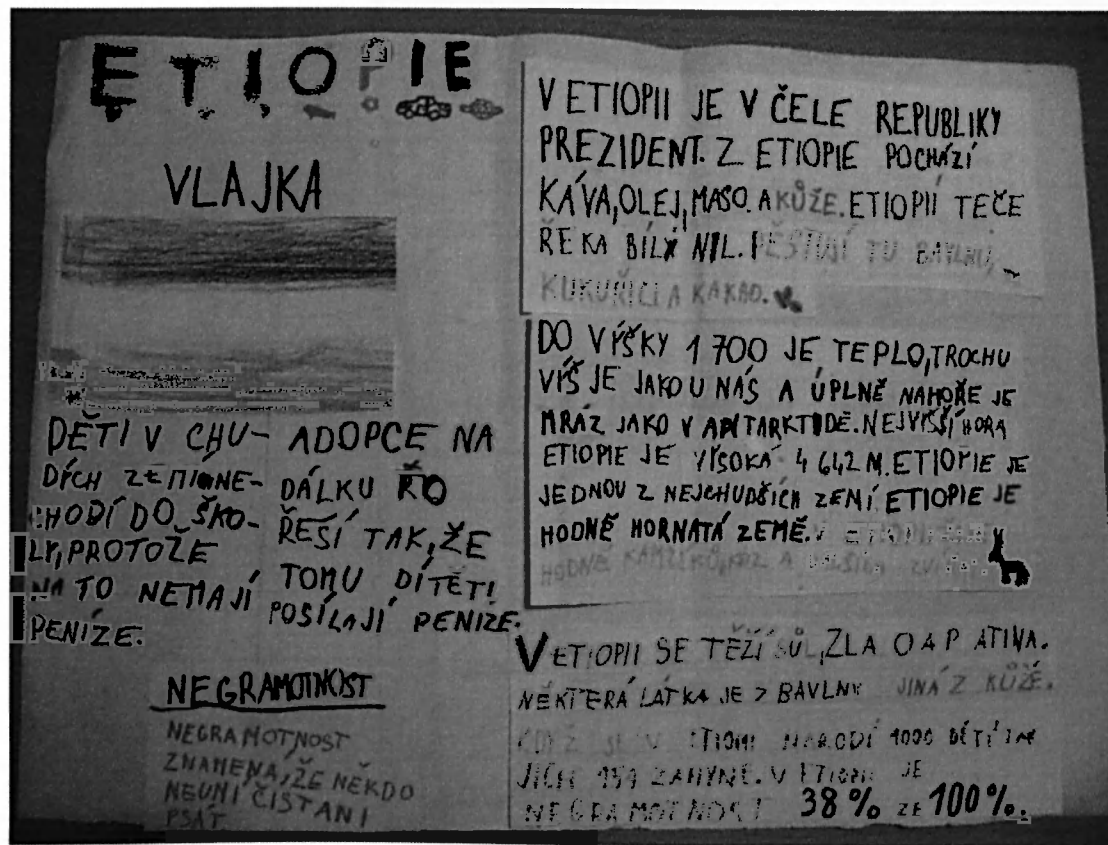 ETIOPIE
VLAJKA
DĚTI V CHU-
DÍCH ZEMIONE-
CHODÍ DO ŠKO-
LY, PROTOŽE
NA TO NEMAJÍ
PENÍZE.
ADOPCE NA
DÁLKU TO
ŘEŠÍ TAK, ŽE
TOMU DÍTĚTI
POSÍLAJÍ PENIZE.
NEGRAMOTNOST
NEGRAMOTNOST
ZNAMENA, ŽE NĚKDO
NEUMÍ ČÍST ANI
PSÁT.
V ETIOPII JE V ČELE REPUBLIKY
PREZIDENT. Z ETIOPIE POCHÁZÍ
KÁVA, OLEJ, MASO. A KŮŽE. ETIOPIÍ TEČE
ŘEKA BÍLÝ NIL. PĚSTUJÍ TU BAVLNU,
KUKUŘICI A KAKAO.
DO VÝŠKY 1 700 JE TEPLO, TROCHU
VÍŠ JE JAKO U NÁS A ÚPLNĚ NAHOŘE JE
MRÁZ JAKO V ANTARKTIDĚ. NEJVIŠŠÍ HORA
ETIOPIE JE VÍSOKÁ 4 642 M. ETIOPIE JE
JEDNOU Z NEJCHUDŠÍCH ZEMÍ ETIOPIE JE
HODNĚ HORNATÁ ZEMĚ. V ETIOPII
HODNĚ KAMZÍKŮ, KOZ A
V ETIOPII SE TĚŽÍ SŮL, ZLA O A P ATINA.
NĚKTERÁ LÁTKA JE Z BAVLNY JINÁ Z KŮŽE.
KDYŽ SE V ETIOPII NARODÍ 1000 DĚTÍ TAK
JICH 151 ZAHYNE. V ETIOPII JE
NEGRAMOTNOST 38% ZE 100%.